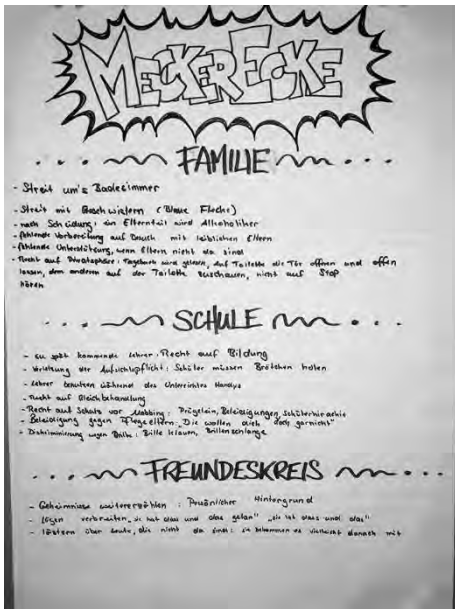 MECKERECKE
FAMILIE
- Streit um's Badezimmer
- Streit mit Geschwistern (Blaue Flecke)
- nach Scheidung: ein Elternteil wird Alkoholiker
- fehlende Vorbereitung auf Besuch mit leiblichen Eltern
- fehlende Unterstützung, wenn Eltern nicht da sind
- Recht auf Privatsphäre: Tagebuch wird gelesen, Auf Toilette die Tür öffnen und offen
lassen, dem anderen auf der Toilette zuschauen, nicht auf Stop
hören
SCHULE
- zu spät kommende Lehrer: Recht auf Bildung
- Verletzung der Aufsichtspflicht: Schüler müssen Brötchen holen
- Lehrer benutzen während des Unterrichtes Handys
- Recht auf Gleichbehandlung
- Recht auf Schutz vor Mobbing: Prügelein, Beleidigungen, Schülerhirachie
- Beleidigung gegen Pflegeeltern: „Die wollen dich doch garnicht"
- Diskriminierung wegen Brille: Brille klauen, Brillenschlange
FREUNDESKREIS
- Geheimnisse weitererzählen: Persönlicher Hintergrund
- Lügen verbreiten „sie hat das und das getan" „sie ist dies und das"
- lästern über Leute, die nicht da sind: sie bekommen es vielleicht danach mit